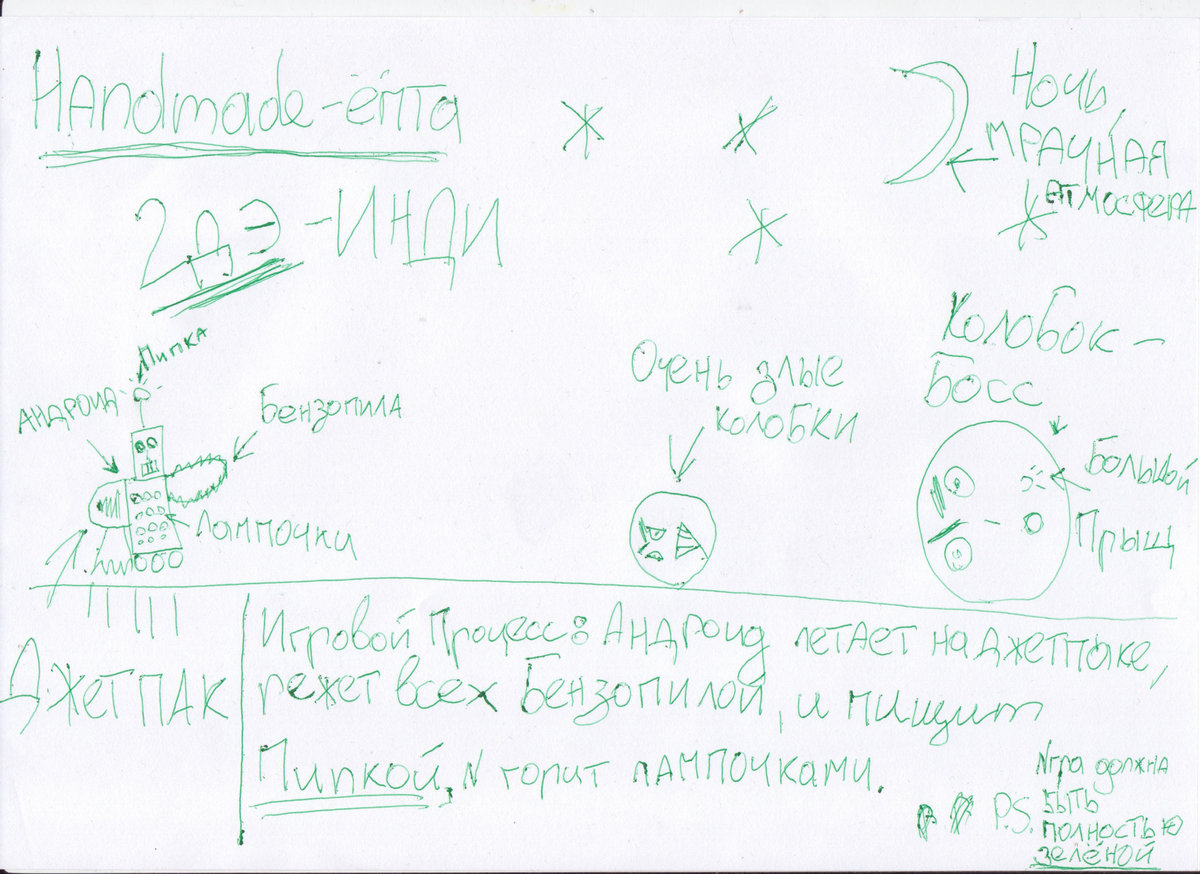 Handmade-ёпта
2дЭ-ИНДИ
Ночь,
МРАЧНАЯ
АТМОСФЕРА
Пипка
АНДРОИД
Бензопила
Лампочки
Очень злые
колобки
Колобок-
Босс
Большой
Прыщ
ДЖЕТПАК
Игровой Процесс: Андроид летает на джетпаке,
режет всех Бензопилой, и пищит
Пипкой, и горит лампочками.
P.S. Игра должна
быть
полностью
зелёной